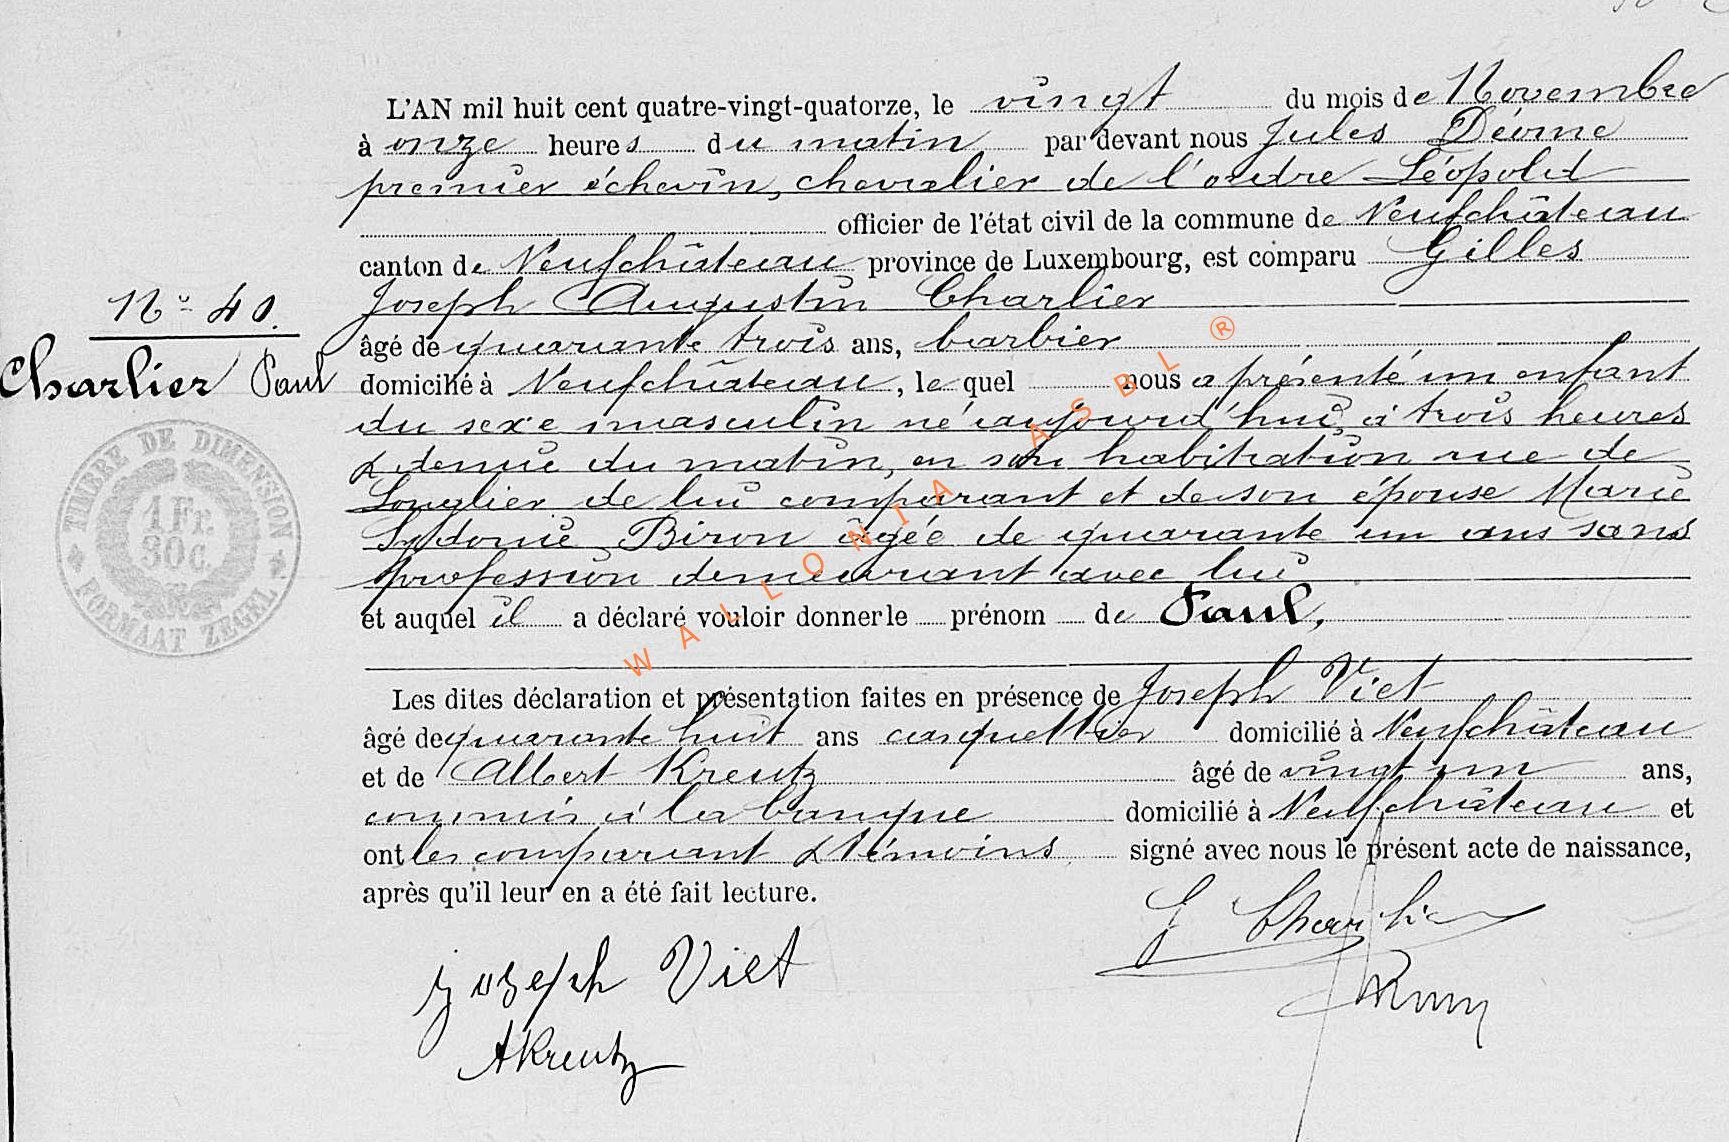 L'AN mil huit cent quatre-vingt-quatorze, le vingt du mois de Novembre
à onze heures du matin par devant nous Jules
premier échevin, chevalier de l'ordre Léopold
officier de l'état civil de la commune de Neufchâteau
canton de Neufchâteau province de Luxembourg, est comparu Gilles
Joseph Augustin Charlier
N° 40.
Charlier Paul
âgé de quarante trois ans, barbier
domicilié à Neufchâteau, le quel nous a présenté un enfant
du sexe masculin né aujourd'hui à trois heures
& demie du matin, en son habitation rue de
Longlier de lui comparant et de son épouse Marie
Sydonie Biron âgée de quarante un ans sans
profession demeurant avec lui
et auquel il a déclaré vouloir donner le prénom de Paul,
Les dites déclaration et présentation faites en présence de Joseph Viet
âgé de quarante huit ans casquettier domicilié à Neufchâteau
et de Albert Kreutz âgé de vingt un ans,
commis à la banque domicilié à Neufchâteau et
ont les comparant & témoins signé avec nous le présent acte de naissance,
après qu'il leur en a été fait lecture.
G Charlier
Joseph Viet
AKreutz
TIMBRE DE DIMENSION
1 Fr.
30c.
FORMAAT ZEGEL
WALLONIA ASBL ®